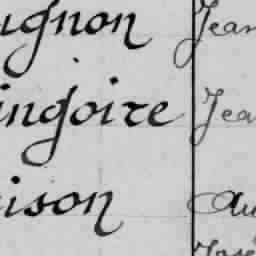 ugnon Jean
ingoire Jea
ison Au
José